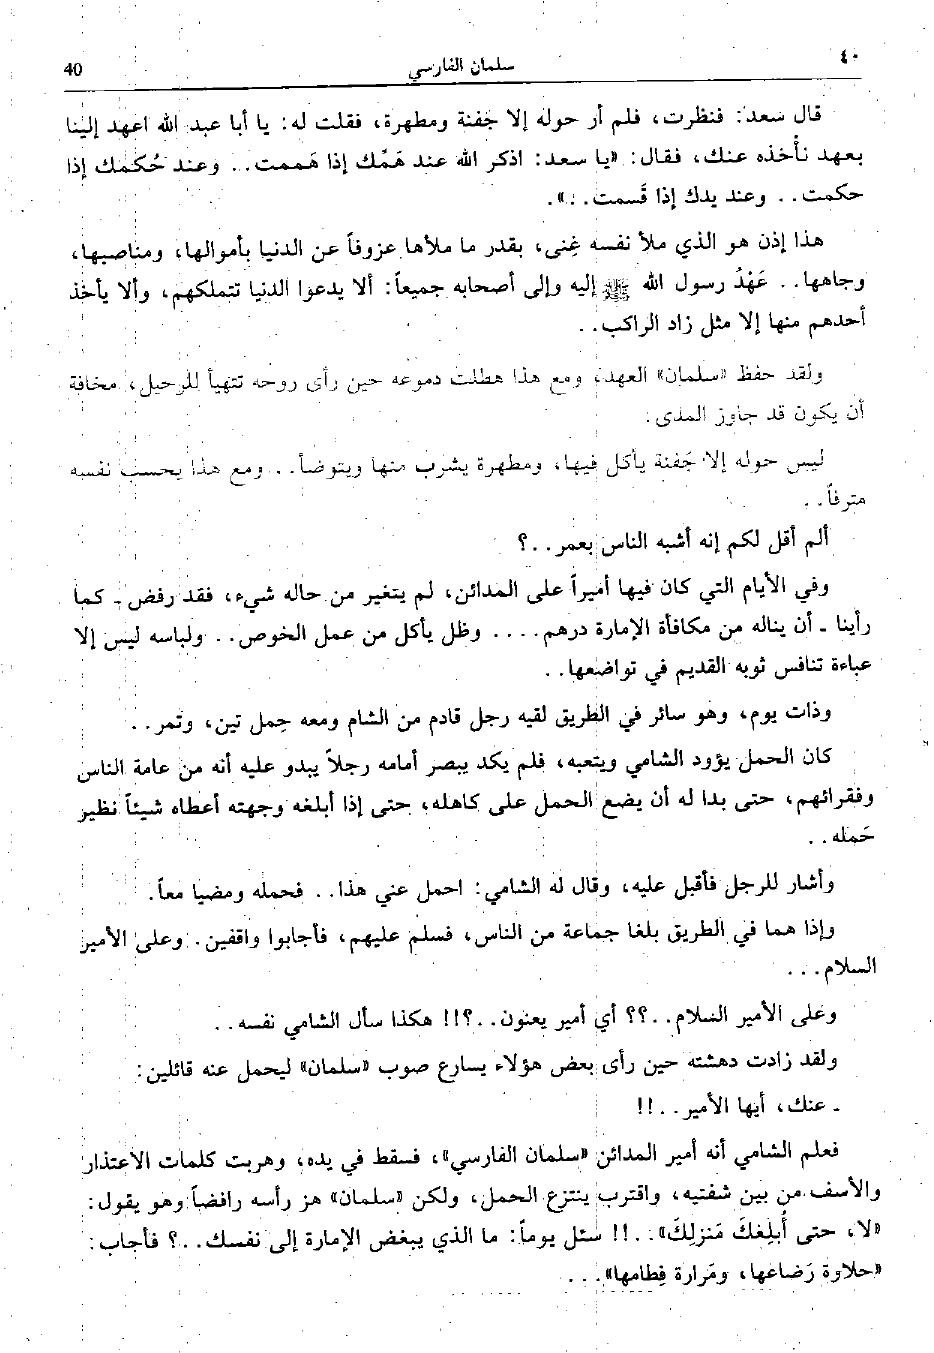 ٤٠
سلمان الفارسي
40
قال سعد: فنظرت، فلم أر حوله إلا جَفنة ومطهرة، فقلت له: يا أبا عبد الله اعهد إلينا
بعهد نأخذه عنك، فقال: «يا سعد: اذكر الله عند هَمِّك إذا هَممت.. وعند حُكمك إذا
حكمت.. وعند يدك إذا قَسمت..».
هذا إذن هو الذي ملأ نفسه غِنى، بقدر ما ملأها عزوفاً عن الدنيا بأموالها، ومناصبها،
وجاهها.. عَهْدُ رسول الله ﷺ إليه وإلى أصحابه جميعاً: ألا يدعوا الدنيا تتملكهم، وألا يأخذ
أحدهم منها إلا مثل زاد الراكب..
ولقد حفظ «سلمان» العهد، ومع هذا هطلت دموعه حين رأى روحه تتهيأ للرحيل، مخافة
أن يكون قد جاوز المدى.
ليس حوله إلا جَفنة يأكل فيها، ومطهرة يشرب منها ويتوضأ.. ومع هذا يحسب نفسه
مترفاً..
ألم أقل لكم إنه أشبه الناس بعمر..؟
وفي الأيام التي كان فيها أميراً على المدائن، لم يتغير من حاله شيء، فقد رفض ـ كما
رأينا ـ أن يناله من مكافأة الإمارة درهم.... وظل يأكل من عمل الخوص.. ولباسه ليس إلا
عباءة تنافس ثوبه القديم في تواضعها..
وذات يوم، وهو سائر في الطريق لقيه رجل قادم من الشام ومعه حِمل تين، وتمر..
كان الحمل يؤود الشامي ويتعبه، فلم يكد يبصر أمامه رجلاً يبدو عليه أنه من عامة الناس
وفقرائهم، حتى بدا له أن يضع الحمل على كاهله، حتى إذا أبلغه وجهته أعطاه شيئاً نظير
حَمله..
وأشار للرجل فأقبل عليه، وقال له الشامي: احمل عني هذا.. فحمله ومضيا معاً.
وإذا هما في الطريق بلغا جماعة من الناس، فسلم عليهم، فأجابوا واقفين. وعلى الأمير
السلام...
وعلى الأمير السلام..؟؟ أي أمير يعنون..؟!! هكذا سأل الشامي نفسه..
ولقد زادت دهشته حين رأى بعض هؤلاء يسارع صوب «سلمان» ليحمل عنه قائلين:
ـ عنك، أيها الأمير..!!
فعلم الشامي أنه أمير المدائن «سلمان الفارسي»، فسقط في يده، وهربت كلمات الاعتذار
والأسف من بين شفتيه، واقترب ينتزع الحمل، ولكن «سلمان» هز رأسه رافضاً وهو يقول:
«لا، حتى أُبلِغكَ مَنزلِكَ»..!! سئل يوماً: ما الذي يبغض الإمارة إلى نفسك..؟ فأجاب:
«حلاوة رَضاعها، ومَرارة فِطامها»...